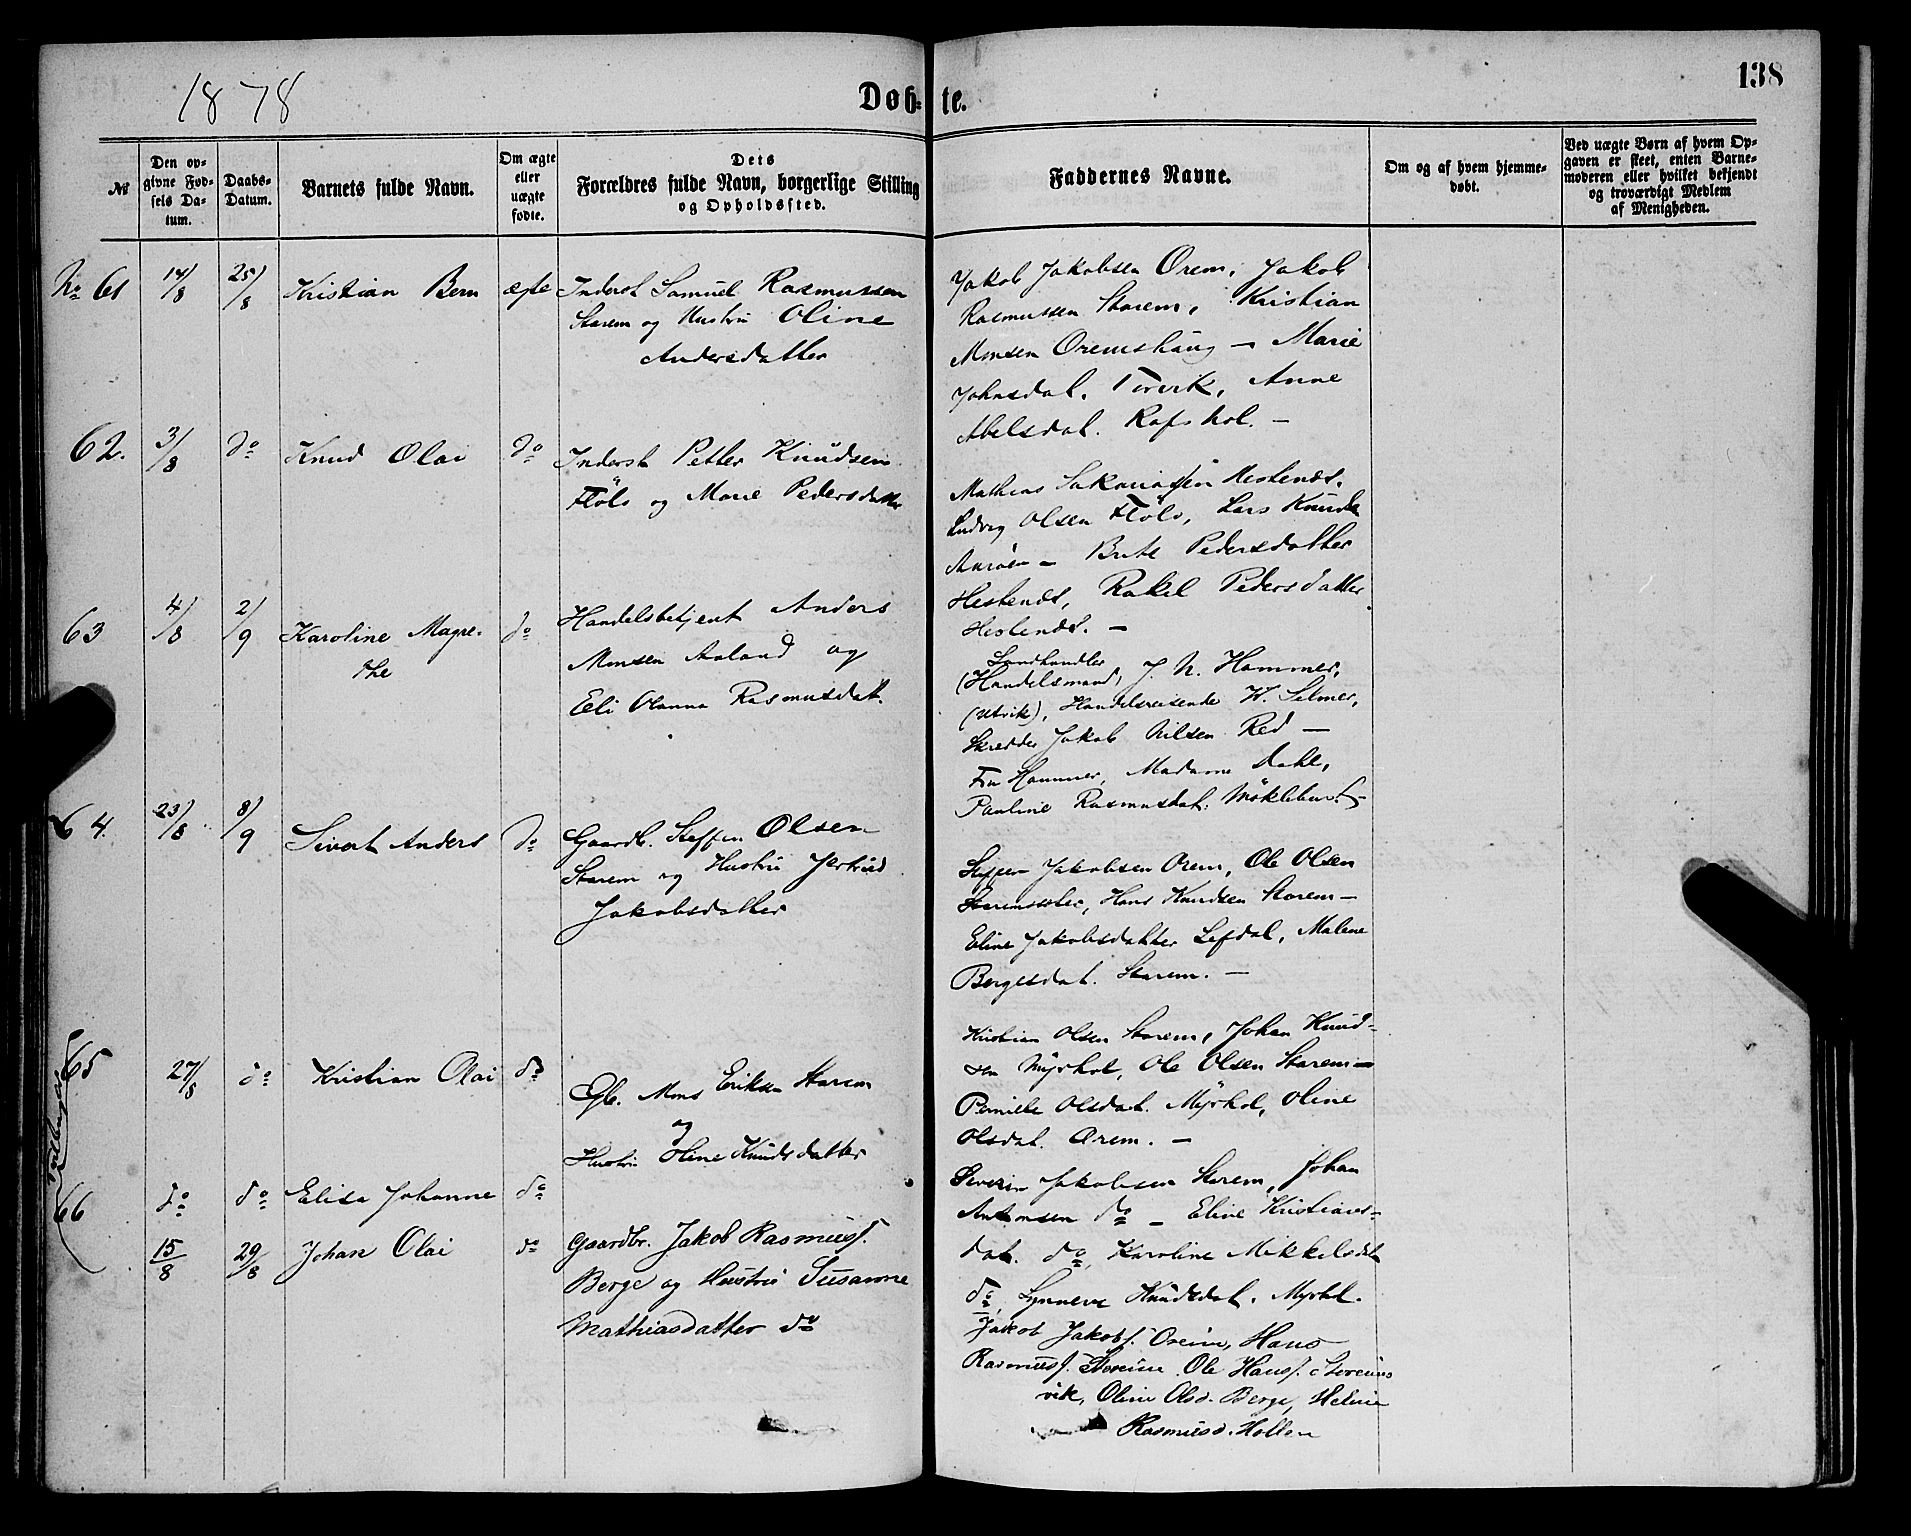 1878
Døb- te.
138
№
Den opgivne Fødsels Datum.
Daabs-Datum.
Barnets fulde Navn.
Om ægte eller uægte fødte.
Dets Forældres fulde Navn, borgerlige Stilling og Opholdssted.
Faddernes Navne.
Om og af hvem hjemmedøbt.
Ved uægte Børn af hvem Opgaven er skeet, enten Barnemoderen eller hvilket bekjendt og troværdigt Medlem af Menigheden.
No 61 14/8 25/8 Kristian Bern ægte Inderst Samuel Rasmussen
Starem og Hustru Oline
Andersdatter
Jakob Jakobsen Orem, Jakob
Rasmussen Starem, Kristian
Monsen Oremshaug — Marie
Johnsdat. Torvik, Anne
Abelsdat. Rafshol. —
62. 3/8 do Knud Olai do Inderst Petter Knudsen
Flölo og Marie Pedersdatter
Mathias Sakariassen Hestenes.
Ludvig Olsen Flölo, Lars Knuds
Aaröen — Brite Pedersdatter
Hestenes, Rakel Pedersdatter
Hestenes. —
63 4/8 2/9 Karoline Magre-
the
do Handelsbetjent Anders
Monsen Aaland og
Eli Olanna Rasmusdat.
Landhandler
(Handelsmand, J. N. Hammer,
(Utvik), Handelsreisende W. Selmer,
Skredder Jakob Nilsen Red —
Fru Hammer, Madame Dahl,
Pauline Rasmusdat. Möklebust —
64. 23/8 8/9 Sivert Anders do Gaardb. Steffen Olsen
Starem og Hustru Jertrud
Jakobsdatter
Steffen Jakobsen Orem, Ole Olsen
Hans Knudsen Starem —
Eline Jakobsdatter Lefdal, Malene
Bergesdat. Starem. —
65 27/8 do Kristian Olai do
Gb. Mons Eriksen Starem
og
Hustru Oline Knudsdatter
Kristian Olsen Starem, Johan Knud-
sen Myrhol, Ole Olsen Starem —
Pernille Olsdat. Myrhol, Oline
Olsdat. Orem. —
Tvillinger
66 do do Elisa Johanne do
Severin Jakobsen Starem, Johan
Antonsen do — Eline Kristians-
dat. do, Karoline Mikkelsdat
do, Synneve Knudsdat. Myrhol.
15/8 29/8 Johan Olai do Gaardbr. Jakob Rasmuss.
Berge og Hustru Susanne
Mathiasdatter do
Jakob Jakobs. Oreim, Hans
Rasmuss. Stareim Ole Hanss. Stareims
vik, Oline Olsd. Berge, Heline
Rasmusd. Hollen